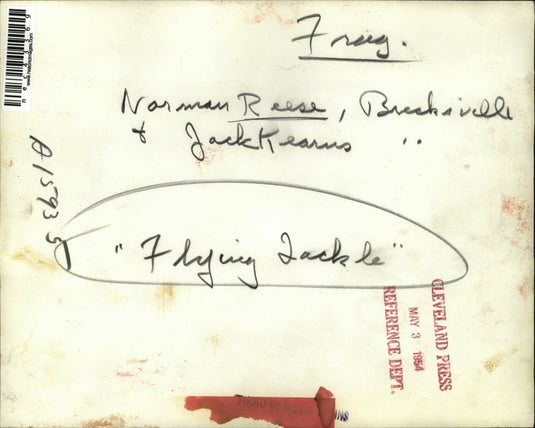 Frug.
Norman Reese, Brecksville
& Jack Kearns "
A15935
"Flying Tackle"
CLEVELAND PRESS
MAY 3 1954
REFERENCE DEPT.